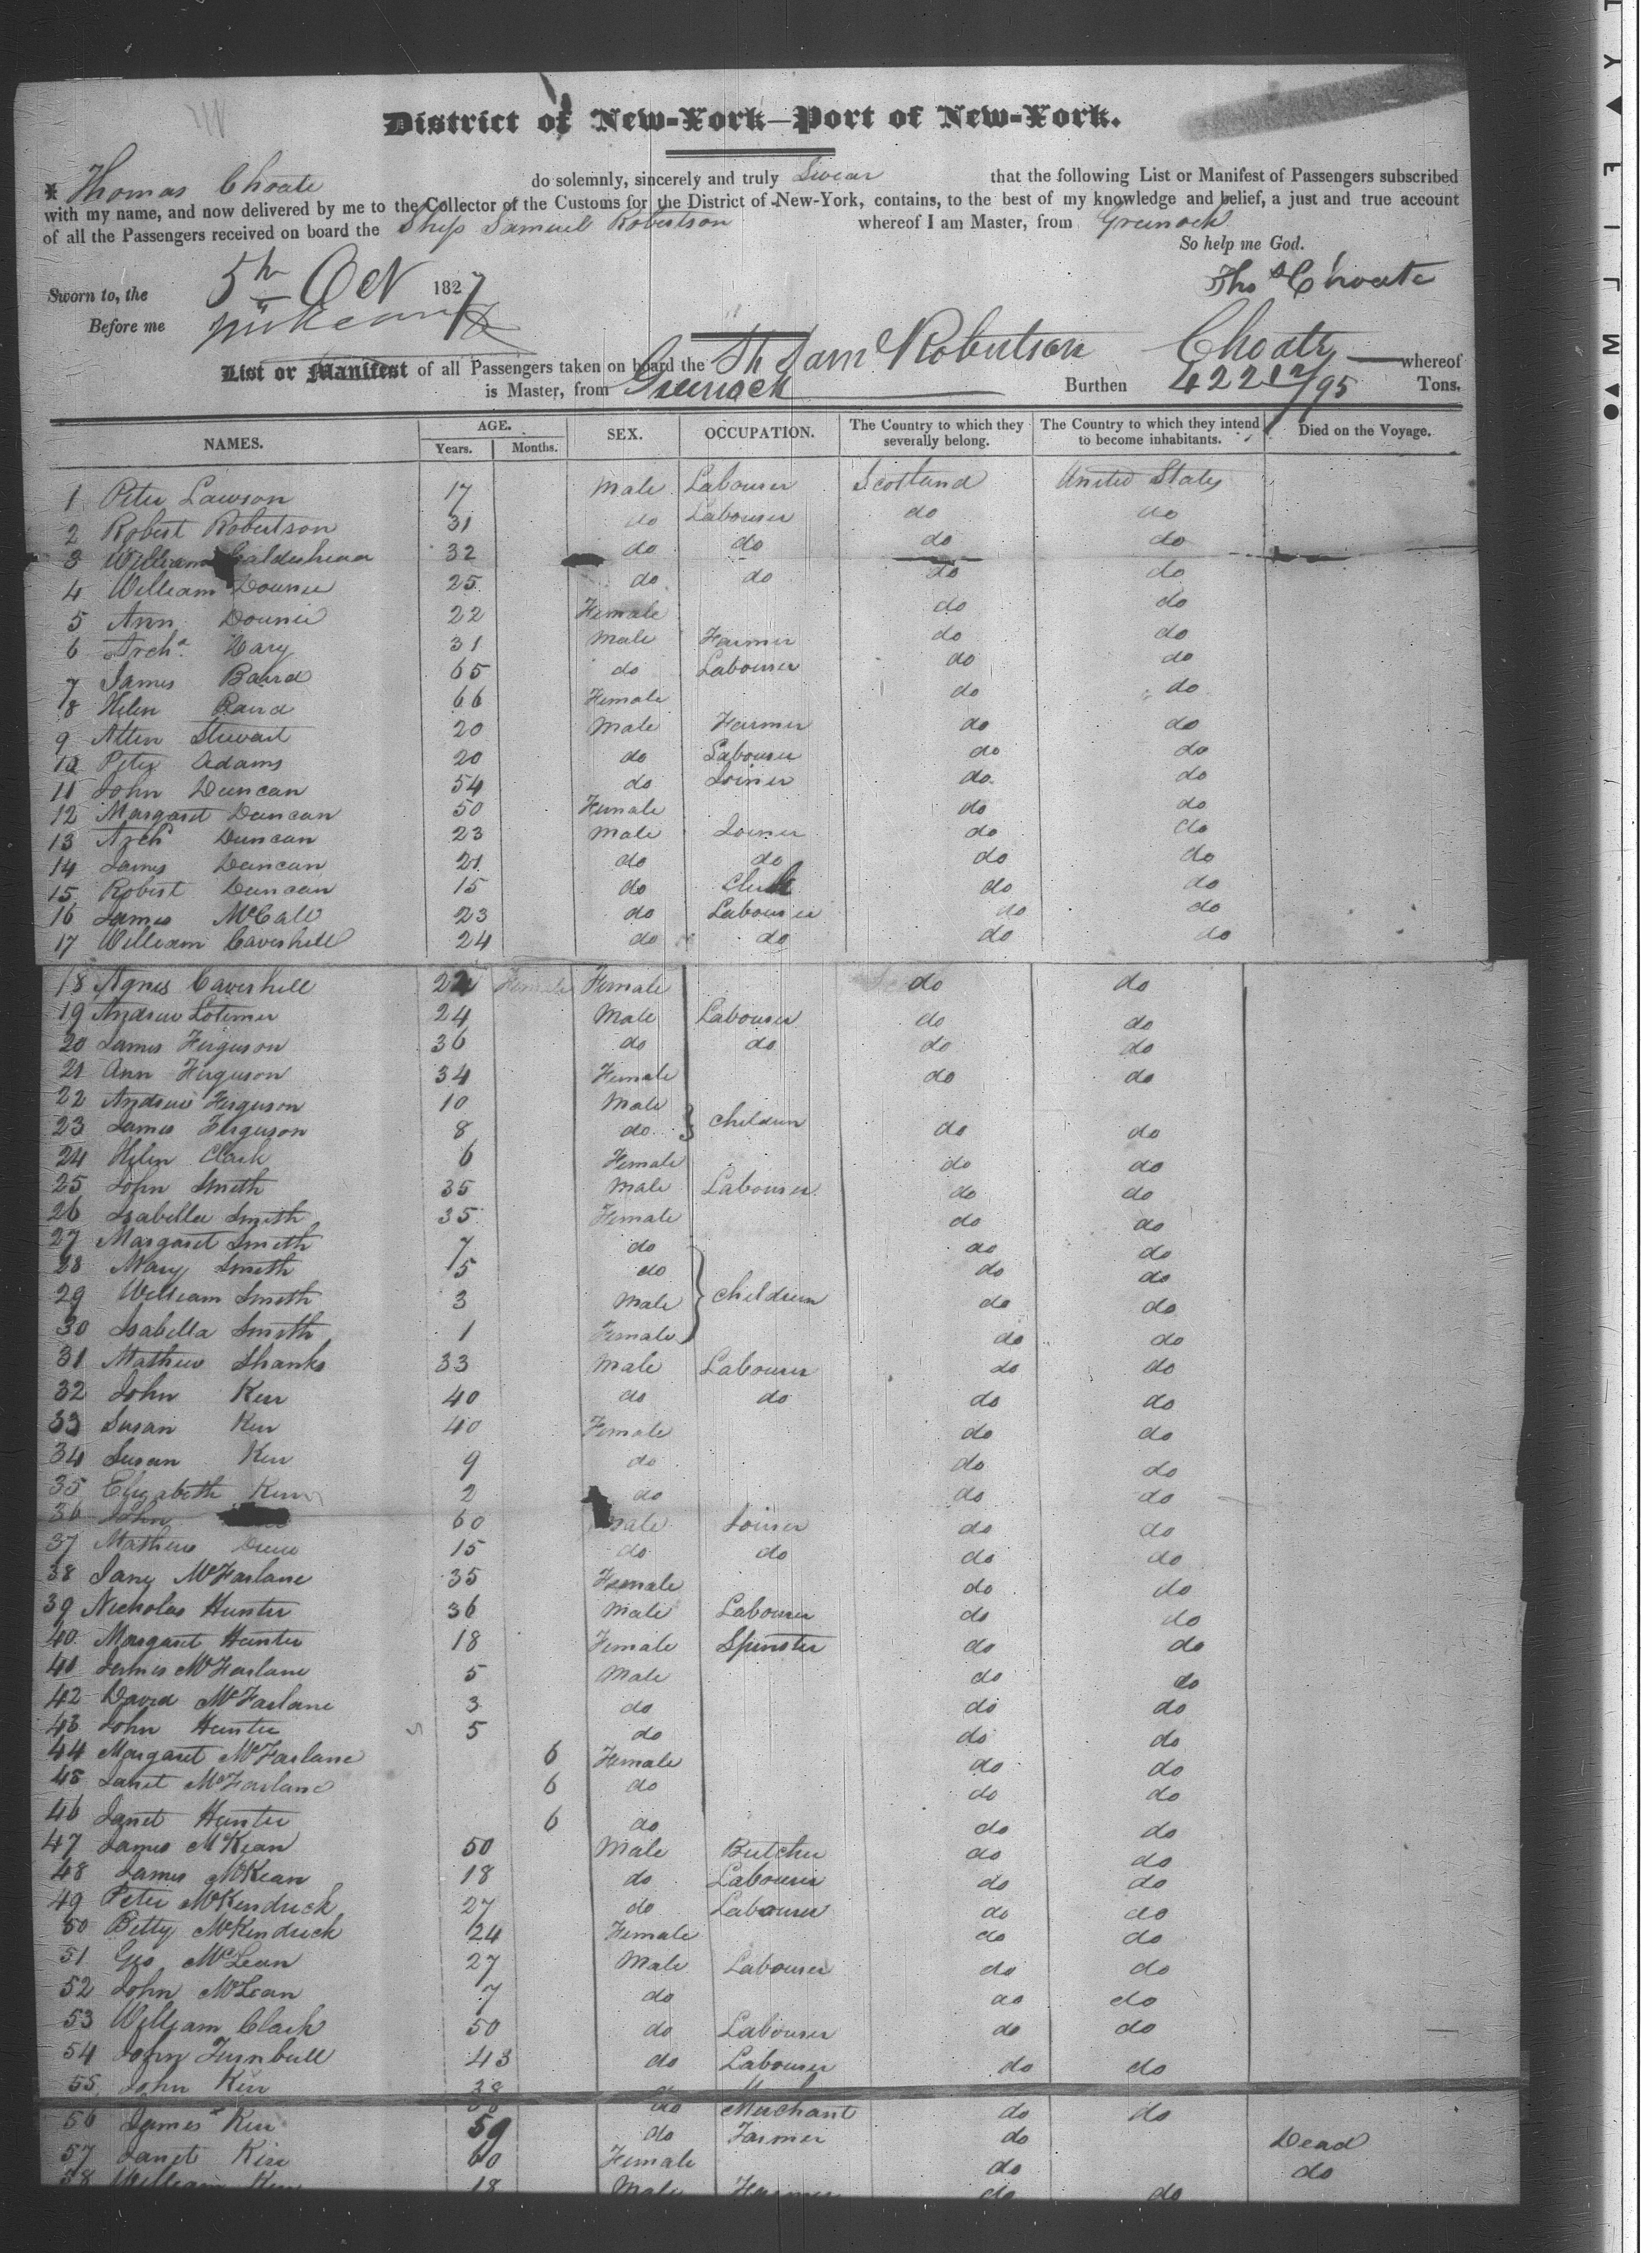 District of New-York—Port of New-York.
Thomas Choate do solemnly, sincerely and truly Swear that the following List or Manifest of Passengers subscribed
with my name, and now delivered by me to the Collector of the Customs for the District of New-York, contains, to the best of my knowledge and belief, a just and true account
of all the Passengers received on board the Ship Samuel Robertson whereof I am Master, from Greenock
So help me God.
Sworn to, the 5th Oct 1827 Thos Choate
Before me
List or Manifest of all Passengers taken on board the Sh Sam Robertson Choate whereof
is Master, from Greenock Burthen 422 12/95 Tons.
NAMES. AGE. Years. Months. SEX. OCCUPATION. The Country to which they severally belong. The Country to which they intend to become inhabitants. Died on the Voyage.
1 Peter Lawson 17 Male Labourer Scotland United States
2 Robert Robertson 31 do Labourer do do
3 William Calderhead 32 do do do do
4 William Dounie 25 do do do do
5 Ann Dounie 22 Female do do
6 Archd 31 Male Farmer do do
7 James Baird 65 do Labourer do do
8 Helen Baird 66 Female do do
9 Allen Stewart 20 Male Farmer do do
10 Peter Adams 20 do Labourer do do
11 John Duncan 54 do Joiner do do
12 Margaret Duncan 50 Female do do
13 Archd Duncan 23 Male Joiner do do
14 James Duncan 21 do do do do
15 Robert Duncan 15 do Clerk do do
16 James McCall 23 do Labourer do do
17 William Caverhill 24 do do do do
18 Agnes Caverhill 22 Female Female do do
19 Andrew Lotimer 24 Male Labourer do do
20 James Ferguson 36 do do do do
21 Ann Ferguson 34 Female do do
22 Andrew Ferguson 10 Male
23 James Ferguson 8 do } children do do
24 Helen Clark 6 Female do do
25 John Smith 35 Male Labourer do do
26 Isabella Smith 35 Female do do
27 Margaret Smith 7 do do do
28 Mary Smith 5 do do do
29 William Smith 3 Male } children do do
30 Isabella Smith 1 Female do do
31 Mathew Shanks 33 Male Labourer do do
32 John Kerr 40 do do do do
33 Susan Kerr 40 Female do do
34 Susan Kerr 9 do do do
35 Elizabeth Kerr 2 do do do
36 John 60 Male Joiner do do
37 Mathew 15 do do do do
38 Jane McFarlane 35 Female do do
39 Nicholas Hunter 36 Male Labourer do do
40 Margaret Hunter 18 Female Spinster do do
41 James McFarlane 5 Male do do
42 David McFarlane 3 do do do
43 John Hunter 5 do do do
44 Margaret McFarlane 6 Female do do
45 Janet McFarlane 6 do do do
46 Janet Hunter 6 do do do
47 James McKean 50 Male Butcher do do
48 James McKean 18 do Labourer do do
49 Peter McKendrick 27 do Labourer do do
50 Betty McKendrick 24 Female do do
51 Geo McLean 27 Male Labourer do do
52 John McLean 7 do do do
53 William Clark 50 do Labourer do do
54 John Turnbull 43 do Labourer do do
55 John Kerr 38 do Merchant do do
56 James Kerr 59 do Farmer do Dead
57 Janet Kerr 60 Female do do
58 William Kerr 18 Male Farmer do do